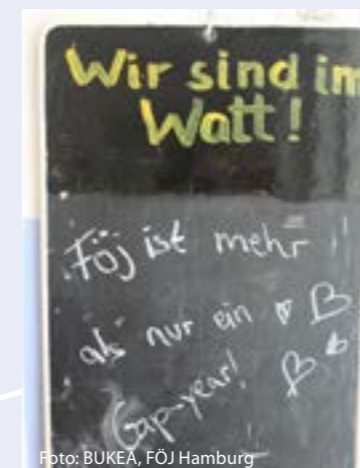 Wir sind im
Watt!
Föj ist mehr
als nur ein
Gap-year!
Foto: BUKEA, FÖJ Hamburg